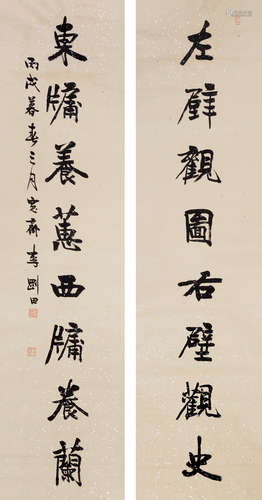 左壁觀圖右壁觀史
東牖養蕙西牖養蘭
丙戌暮春三月寬齋李剛田